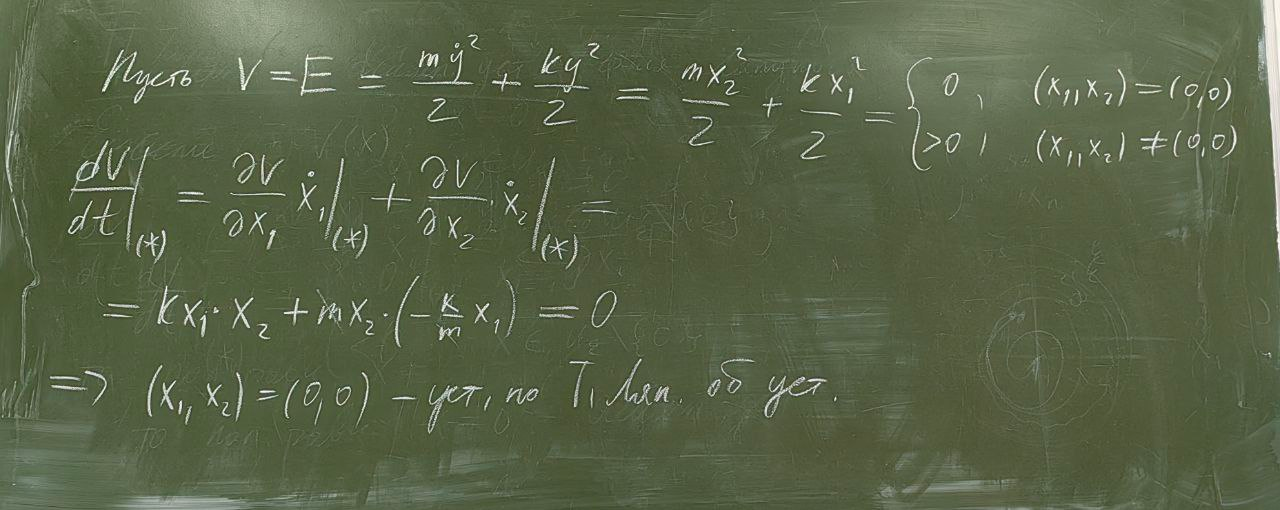 Пусть V = E = mẏ²/2 + ky²/2 = mx₂²/2 + kx₁²/2 = { 0, (x₁, x₂) = (0,0)
>0, (x₁, x₂) ≠ (0,0)
dV/dt|₍*₎ = ∂V/∂x₁ ẋ₁|₍*₎ + ∂V/∂x₂ · ẋ₂|₍*₎ =
= kx₁ · x₂ + mx₂ · (-k/m x₁) = 0
=> (x₁, x₂) = (0,0) – уст, по Т, Ляп. об уст.